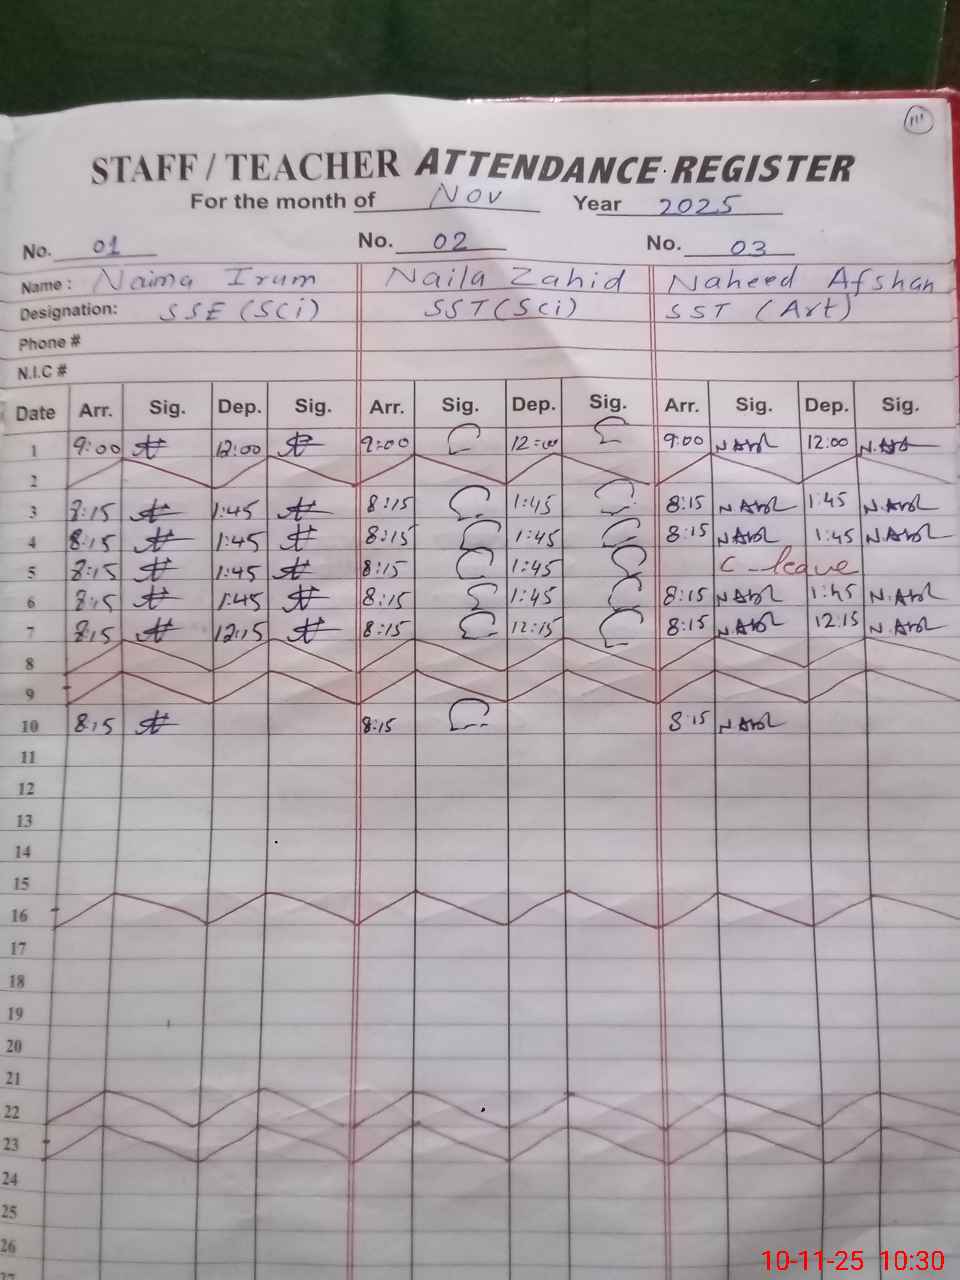 111
STAFF / TEACHER ATTENDANCE REGISTER
For the month of Nov Year 2025
No. 01 No. 02 No. 03
Name: Naima Irum Naila Zahid Naheed Afshan
Designation: SSE (Sci) SST (Sci) SST (Art)
Phone #
N.I.C #
Date Arr. Sig. Dep. Sig. Arr. Sig. Dep. Sig. Arr. Sig. Dep. Sig.
1 9:00 12:00 9:00 12:00 9:00 12:00
2
3 8:15 1:45 8:15 1:45 8:15 1:45
4 8:15 1:45 8:15 1:45 8:15 1:45
5 8:15 1:45 8:15 1:45 C-leave
6 8:15 1:45 8:15 1:45 8:15 1:45
7 8:15 12:15 8:15 12:15 8:15 12:15
8
9
10 8:15 8:15 8:15
11
12
13
14
15
16
17
18
19
20
21
22
23
24
25
26
27
10-11-25 10:30